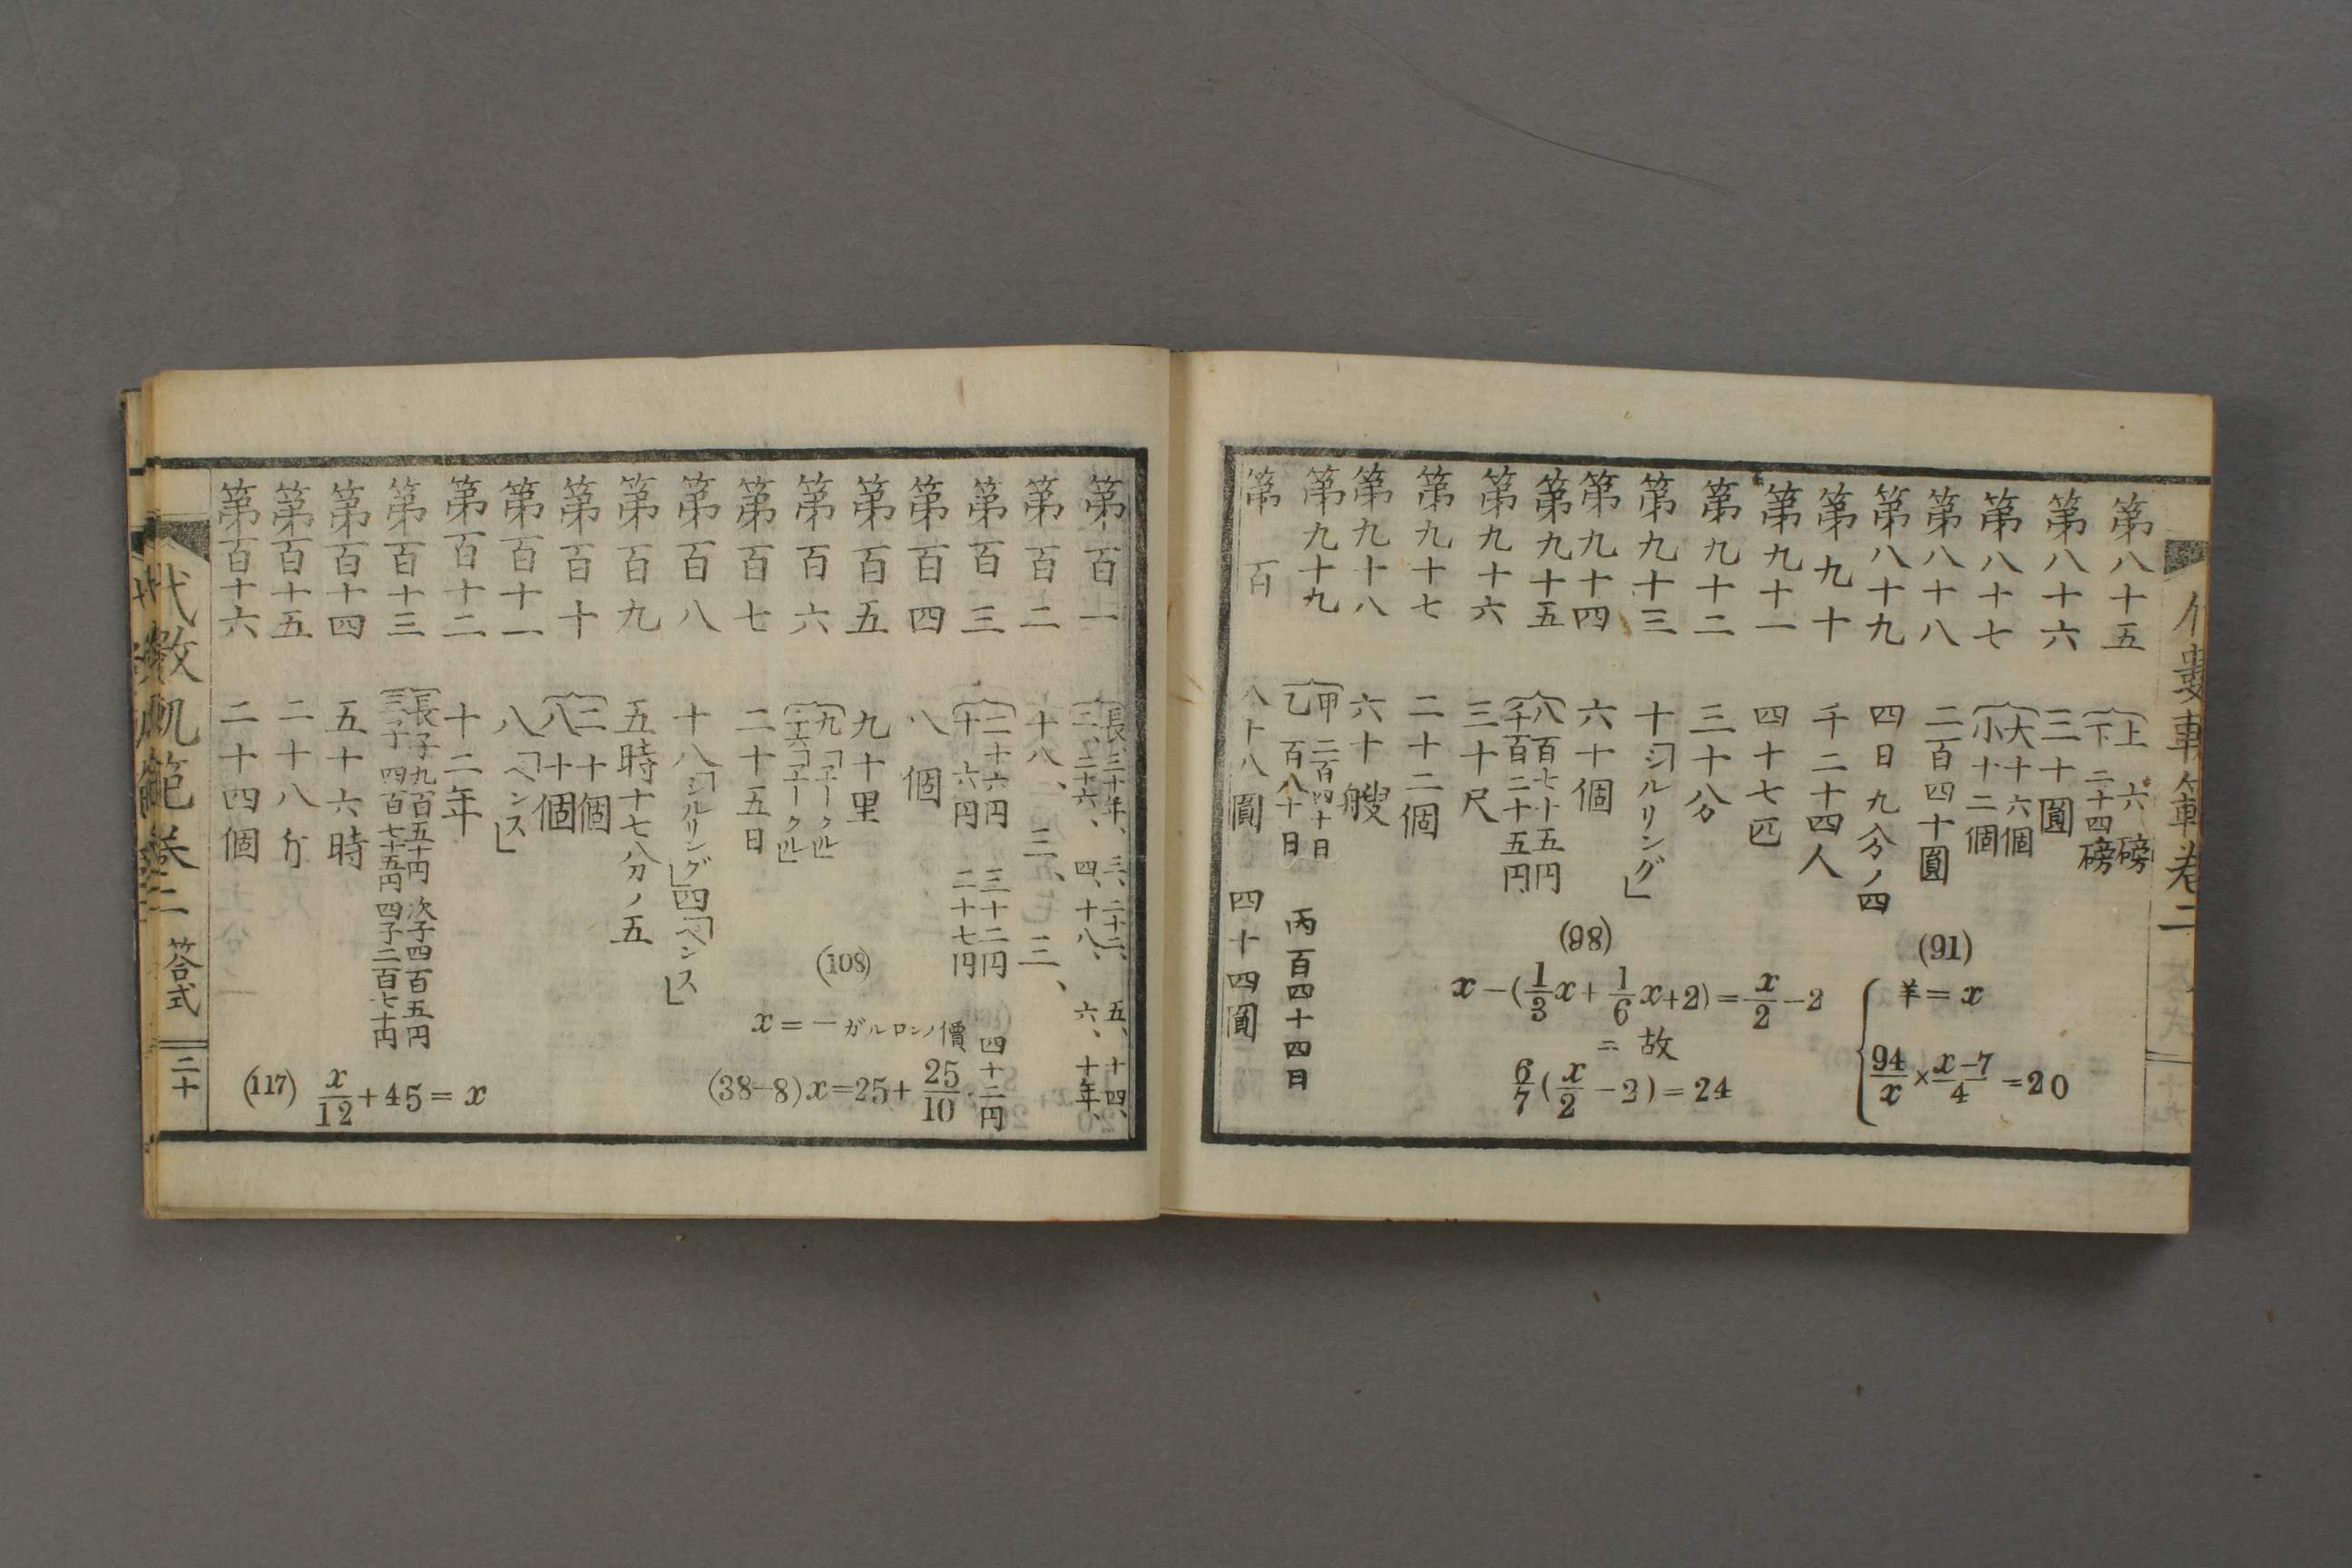 第八十五 上 六磅 下 二十四磅
第八十六 三十圓
第八十七 大十六個 小十二個
第八十八 二百四十圓
第八十九 四日九分ノ四
第九十 千二十四人
第九十一 四十七匹
第九十二 三十八分
第九十三 十「シルリング」
第九十四 六十個
第九十五 八百七十五円 千百二十五円
第九十六 三十尺
第九十七 二十二個
第九十八 六十艘
第九十九 甲 二百四十日 乙 百八十日 丙百四十四日
第百 八十八圓 四十四圓
(91)
羊=x
94/x × x-7/4 =20
(98)
x-(1/3x+1/6x+2)=x/2-2
= 故
6/7(x/2-2)=24
第百一 長、三十年、三、二十二、五、十四、二、二十六、四、十八、六、十年、
第百二 十八、三、三、
第百三 二十六円 三十二円 四十二円 十六円 二十七円
第百四 八個
第百五 九十里
第百六 九「エークル」 二十六「エークル」
第百七 二十五日
第百八 十八「シルリング」四「ペンス」
第百九 五時十七八分ノ五
第百十 二十個 八十個
第百十一 八「ペンス」
第百十二 十二年
第百十三 長子九百五十円 次子四百五円 三子四百七十五円 四子二百七十円
第百十四 五十六時
第百十五 二十八分
第百十六 二十四個
(108)
x=一ガルロンノ價
(38-8)x=25+25/10.
(117) x/12+45=x
代数軌範卷二 答式 二十